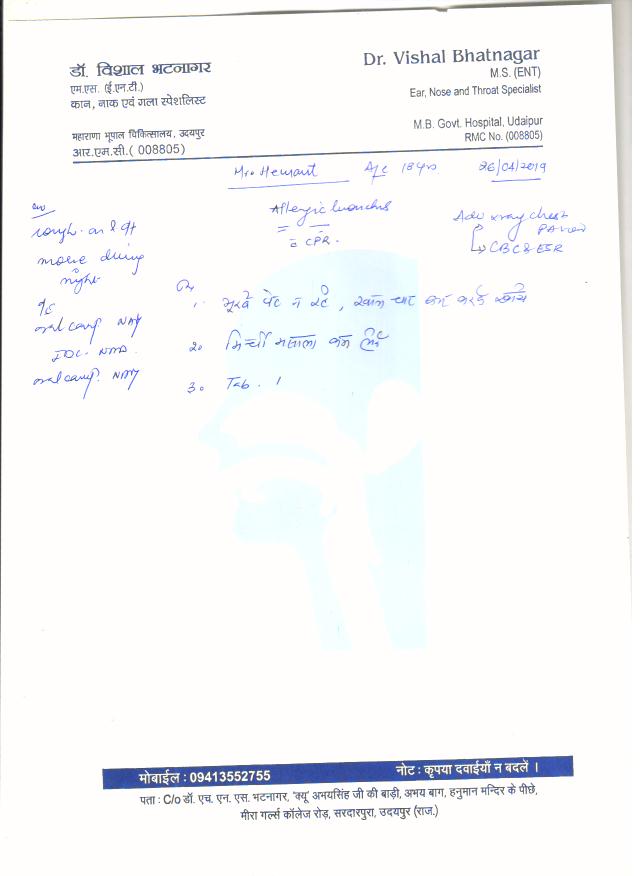 डॉ. विशाल भटनागर
एम.एस. (ई.एन.टी.)
कान, नाक एवं गला स्पेशलिस्ट
महाराणा भूपाल चिकित्सालय, उदयपुर
आर.एम.सी.( 008805)
Dr. Vishal Bhatnagar
M.S. (ENT)
Ear, Nose and Throat Specialist
M.B. Govt. Hospital, Udaipur
RMC No. (008805)
Mr. Hemant
18 yrs
26/04/2019
cough
more during
night
oral cavity
oral cavity
Allergic
CPR.
Adv xray chest
PA view
CBC & ESR
1. भूखे पेट न रहे,
2. मिर्ची मसाला कम
3. Tab.
मोबाईल : 09413552755
नोट : कृपया दवाईयाँ न बदलें ।
पता : C/o डॉ. एच. एन. एस. भटनागर, 'क्यू' अभयसिंह जी की बाड़ी, अभय बाग, हनुमान मन्दिर के पीछे,
मीरा गर्ल्स कॉलेज रोड़, सरदारपुरा, उदयपुर (राज.)